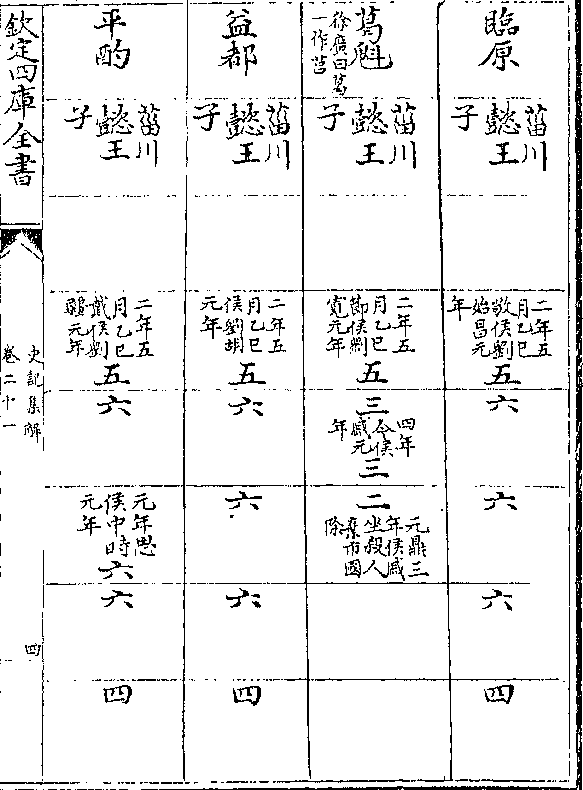 臨原
菑川懿王子
二年五月乙巳敬侯劉始昌元年
五
六
六
六
四
葛魁
徐廣曰葛一作莒
菑川懿王子
二年五月乙巳節侯劉寛元年
五
三
四年今侯戚元年
三
二
元鼎三年侯戚坐殺人棄市國除
益都
菑川懿王子
二年五月乙巳侯劉胡元年
五
六
六
六
四
平酌
菑川懿王子
二年五月乙巳戴侯劉彊元年
五
六
元年思侯中時元年
六
六
四
欽定四庫全書
史記集解
卷二十一
四